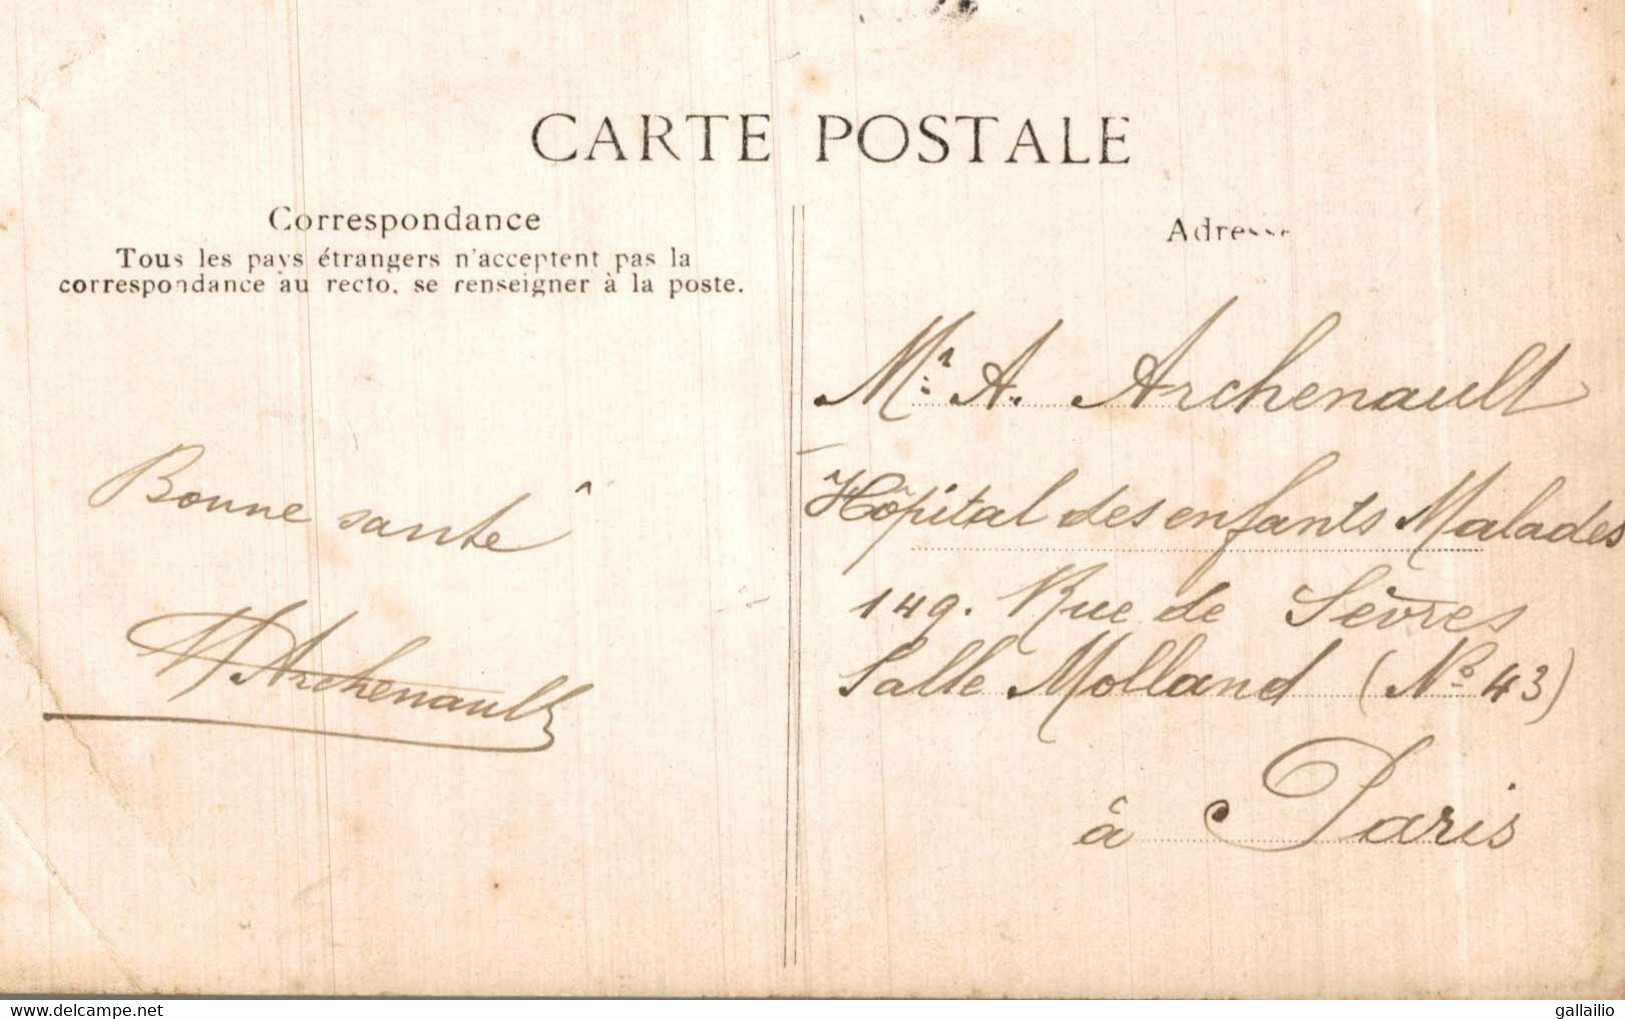 CARTE POSTALE
Correspondance
Tous les pays étrangers n'acceptent pas la
correspondance au recto, se renseigner à la poste.
Bonne santé
Archenault
Adresse
Mr A. Archenault
Hôpital des enfants Malades
149. Rue de Sèvres
Salle Molland (No 43)
à Paris
www.delcampe.net
gallailio